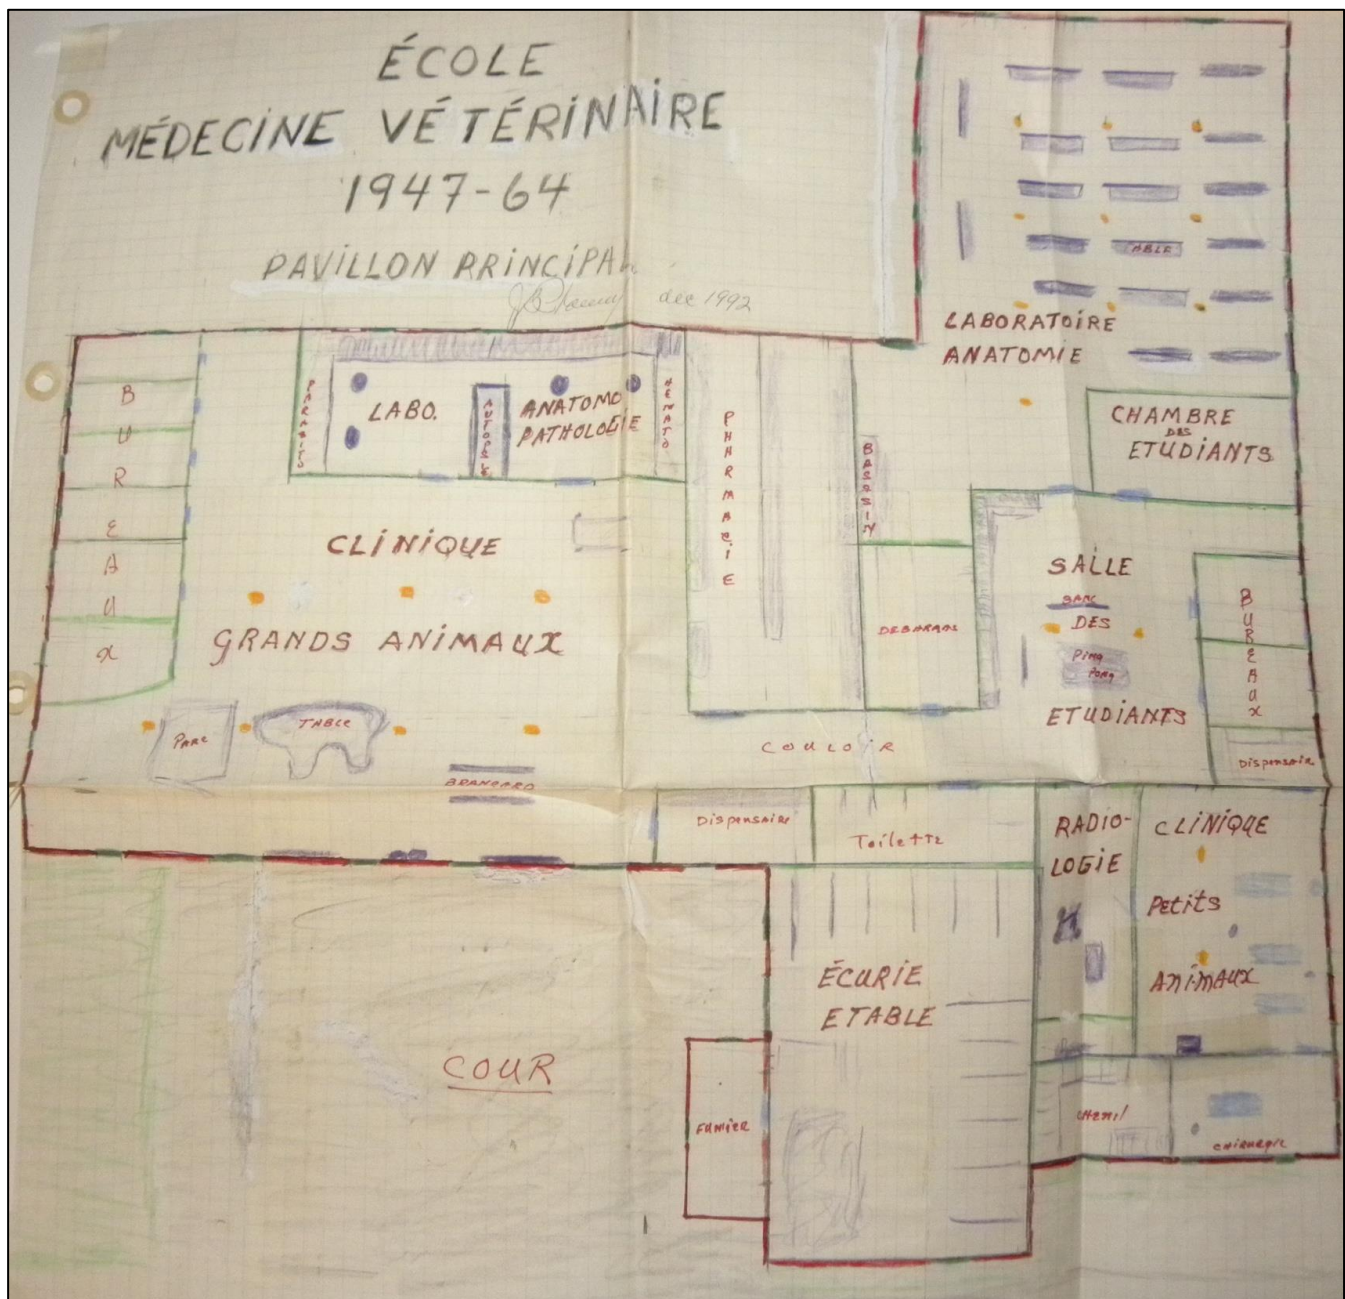 ÉCOLE
MÉDECINE VÉTÉRINAIRE
1947-64
PAVILLON PRINCIPAL
dec 1992
TABLE
LABORATOIRE
ANATOMIE
CHAMBRE
DES
ETUDIANTS
BUREAUX
PARASITO
LABO.
AUTOPSIE
ANATOMO
PATHOLOGIE
HEMATO
PHARMACIE
BASSSIN
CLINIQUE
GRANDS ANIMAUX
DEBARAS
SALLE
BANC
DES
PING
PONG
ETUDIANTS
BUREAUX
Dispensair
PARC
TABLE
BRANCARD
COULOIR
Dispensaire
Toilette
RADIO-
LOGIE
CLINIQUE
PEtits
ANIMAUX
ÉCURIE
ETABLE
COUR
FUMIER
CHENil
CHIRURGIE